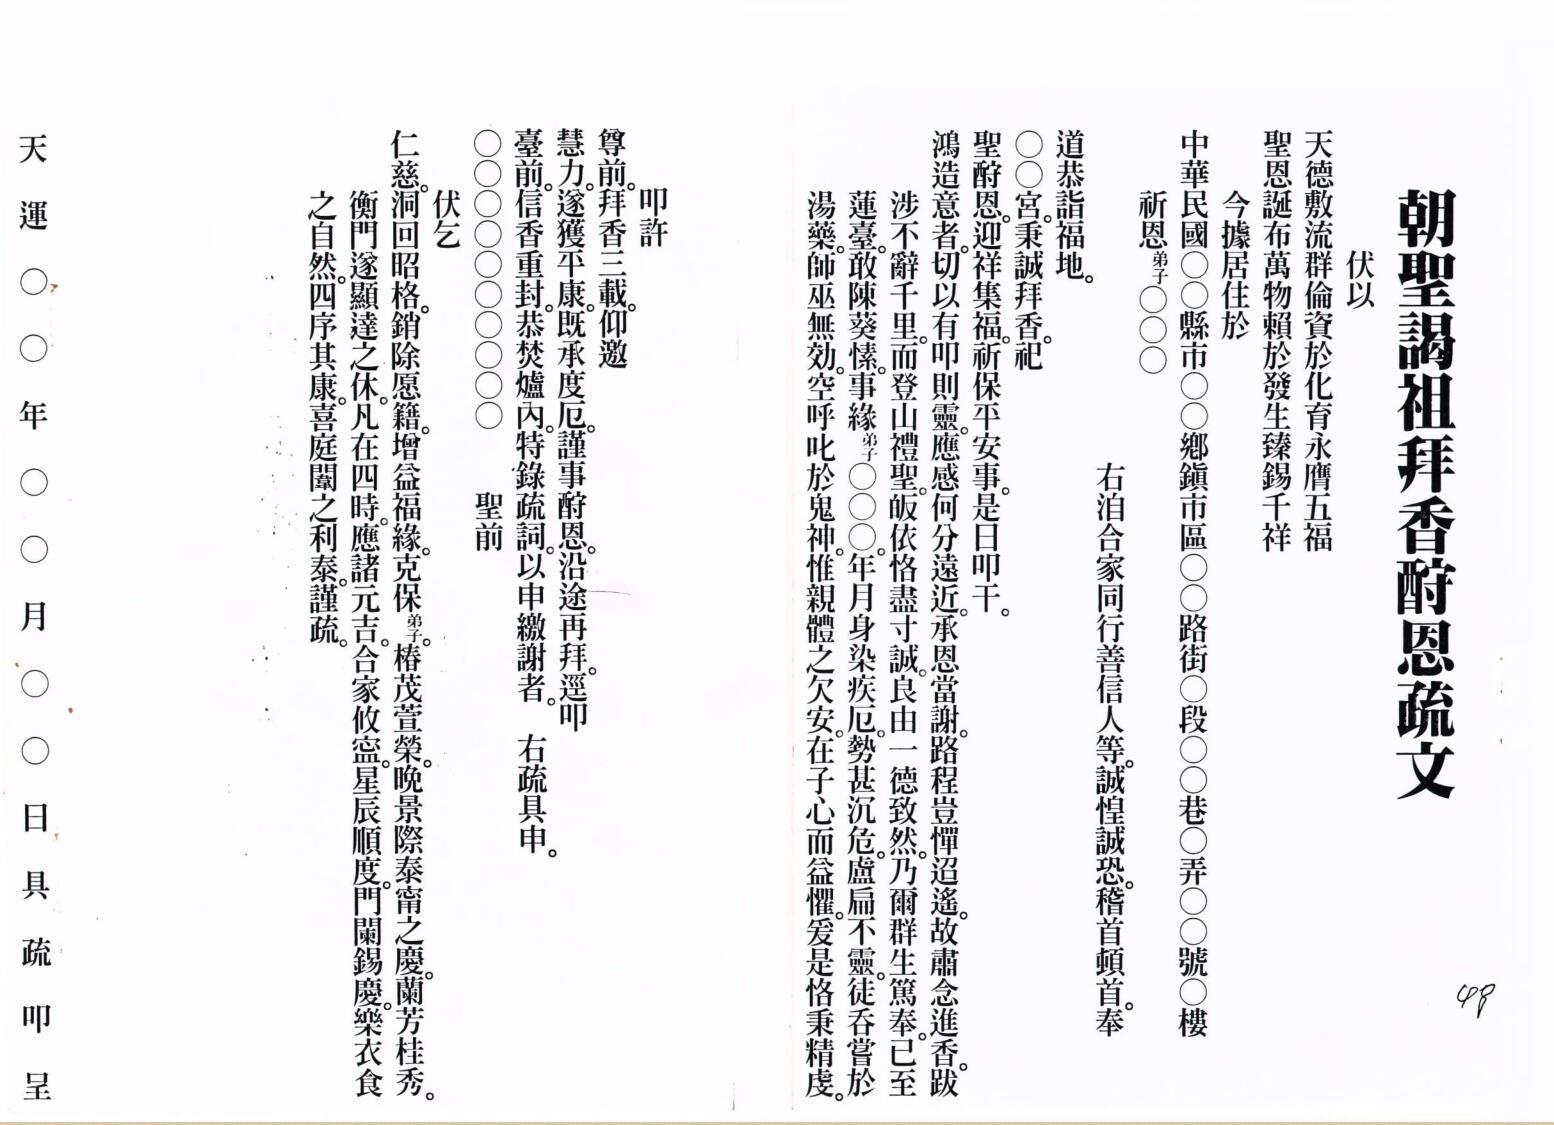 朝聖謁祖拜香酧恩疏文
伏以
天德敷流群倫資於化育永膺五福
聖恩誕布萬物賴於發生臻錫千祥
今據居住於
中華民國〇〇縣市〇〇鄉鎮市區〇〇路街〇段〇〇巷〇弄〇〇號〇樓
祈恩弟子〇〇〇
右洎合家同行善信人等。誠惶誠恐。稽首頓首。奉
道恭詣福地。
〇〇宮。秉誠拜香。祀
聖酧恩。迎祥集福。祈保平安事。是日叩干。
鴻造意者。切以有叩則靈。應感何分遠近。承恩當謝。路程豈憚迢遙。故肅念進香。跋
涉不辭千里。而登山禮聖。皈依恪盡寸誠。良由一德致然。乃爾群生篤奉。已至
蓮臺。敢陳葵愫。事緣弟子〇〇〇。年月身染疾厄。勢甚沉危。盧扁不靈。徒吞嘗於
湯藥。師巫無効。空呼叱於鬼神。惟親體之欠安。在子心而益懼。爰是恪秉精虔。
叩許
尊前。拜香三載。仰邀
慧力。遂獲平康。既承度厄。謹事酧恩。沿途再拜。逕叩
臺前。信香重封。恭焚爐內。特錄疏詞。以申繳謝者。　右疏具申。
〇〇〇〇〇〇〇〇〇〇　　聖前
伏乞
仁慈。洞回昭格。銷除愿籍。增益福緣。克保弟子。椿茂萱榮。晚景際泰甯之慶。蘭芳桂秀。
衡門遂顯達之休。凡在四時。應諸元吉。合家攸寍。星辰順度。門闌錫慶。樂衣食
之自然。四序其康。喜庭闈之利泰。謹疏。
天運〇〇年〇〇月〇〇日具疏叩呈
48